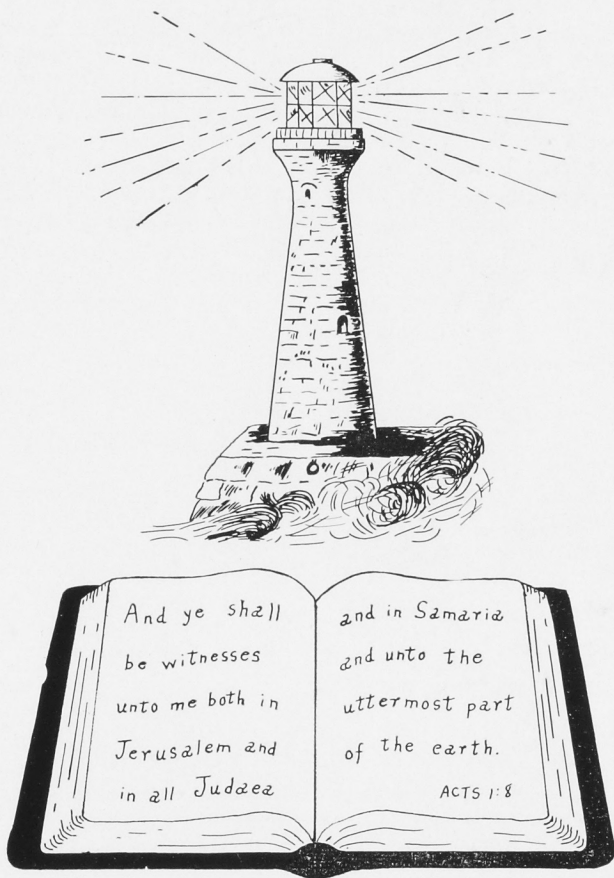 And ye shall
be witnesses
unto me both in
Jerusalem and
in all Judaea
and in Samaria
and unto the
uttermost part
of the earth.
ACTS 1:8